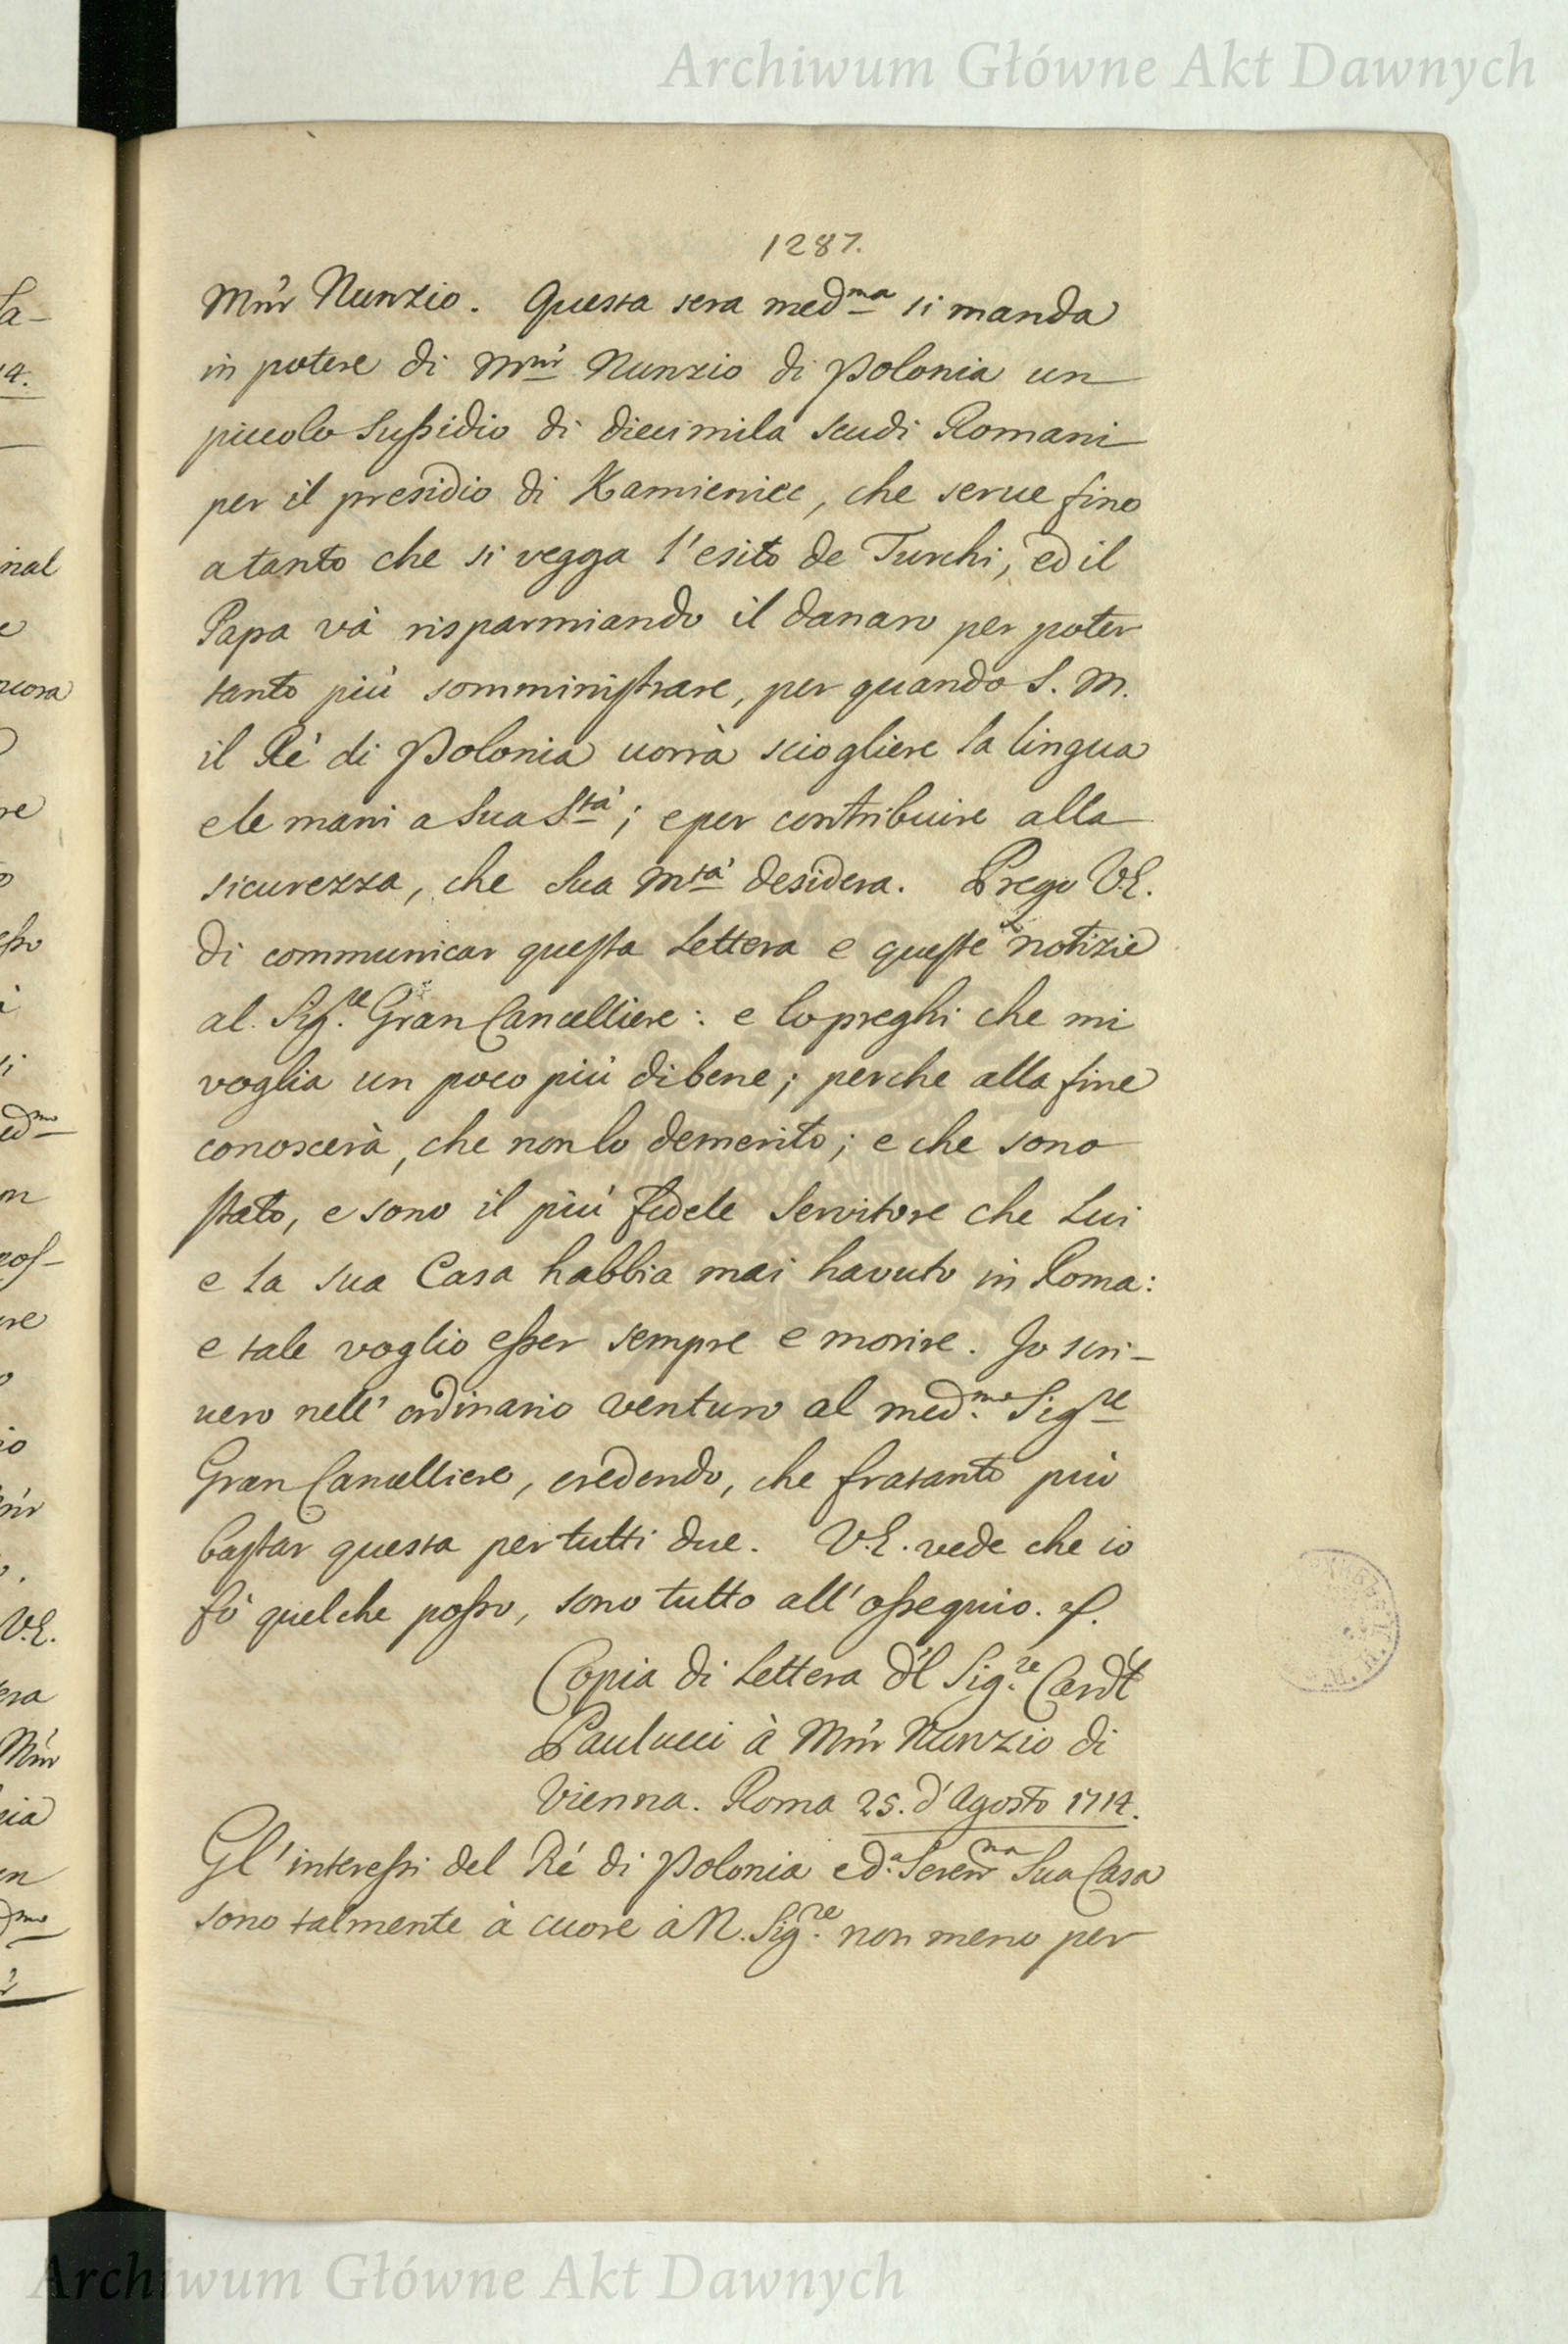 Archiwum Główne Akt Dawnych
1287.
Mñr Nunzio. Questa sera med.ma si manda
in potere di Mñr Nunzio di Polonia un
piccolo Sussidio di diecimila scudi Romani
per il presidio di Kamieniec, che serue fino
atanto che si vegga l'esito de Turchi, ed il
Papa và risparmiando il danaro per poter
tanto più somministrare, per quando S. M.
il Rè di Polonia uorrà sciogliere la lingua
e le mani a Sua Stà; e per contribuire alla
sicurezza, che Sua Mtà desidera. Prego V.E.
di communicar questa Lettera e queste notizie
al Sig.re Gran Cancelliere: e lo preghi che mi
voglia un poco più di bene; perche alla fine
conoscerà, che non lo demerito; e che sono
stato, e sono il più fedele Servitore che Lui
e la sua Casa habbia mai havuto in Roma:
e tale voglio esser sempre e morire. Io scri-
uero nell' ordinario venturo al med.mo Sig.re
Gran Cancelliere, credendo, che fratanto può
bastar questa per tutti due. V.E. vede che io
fò quelche posso, sono tutto all' ossequio.
Copia di Lettera d'l Sig.re Card'l
Paulucci à Mñr Nunzio di
Vienna. Roma 25. d'Agosto 1714.
Gl' interessi del Rè di Polonia e d.a Seren.ma Sua Casa
sono talmente à cuore à N. Sig.re non meno per
Archiwum Główne Akt Dawnych